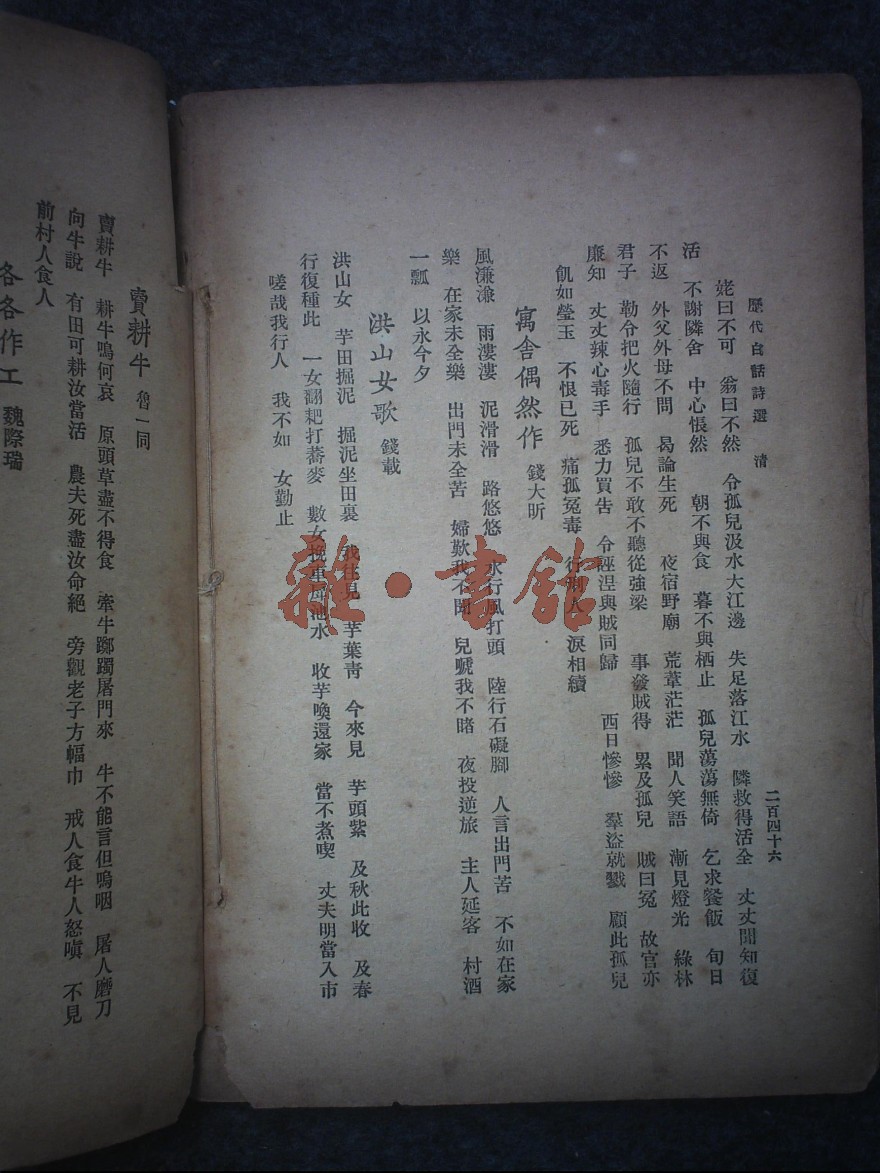 歷代白話詩選　清　二百四十六
姥曰不可　翁曰不然　令孤兒汲水大江邊　失足落江水　隣救得活全　丈丈聞知復
活　不謝隣舍　中心悵然　朝不與食　暮不與栖止　孤兒蕩蕩無倚　乞求餐飯　旬日
不返　外父外母不問　曷論生死　夜宿野廟　荒葦茫茫　聞人笑語　漸見燈光　綠林
君子　勒令把火隨行　孤兒不敢不聽從強梁　事發賊得　累及孤兒　賊曰冤　故官亦
廉知　丈丈辣心毒手　悉力買告　令誣涅與賊同歸　西日慘慘　羣盜就戮　顧此孤兒
飢如瑩玉　不恨已死　痛孤冤毒　行刑人　淚相續
寓舍偶然作　錢大昕
風溓溓　雨漊漊　泥滑滑　路悠悠　水行風打頭　陸行石礙腳　人言出門苦　不如在家
樂　在家未全樂　出門未全苦　婦歎我不聞　兒號我不睹　夜投逆旅　主人延客　村酒
一瓢　以永今夕
洪山女歌　錢載
洪山女　芋田掘泥　掘泥坐田裏　我往見　芋葉靑　今來見　芋頭紫　及秋此收　及春
行復種此　一女翻耙打蕎麥　數女挽車戽池水　收芋喚還家　當不煮喫　丈夫明當入市
嗟哉我行人　我不如　女勤止
賣耕牛　魯一同
賣耕牛　耕牛鳴何哀　原頭草盡不得食　牽牛躑躅屠門來　牛不能言但嗚咽　屠人磨刀
向牛說　有田可耕汝當活　農夫死盡汝命絕　旁觀老子方幅巾　戒人食牛人怒嗔　不見
前村人食人
各各作工　魏際瑞
雜·書館